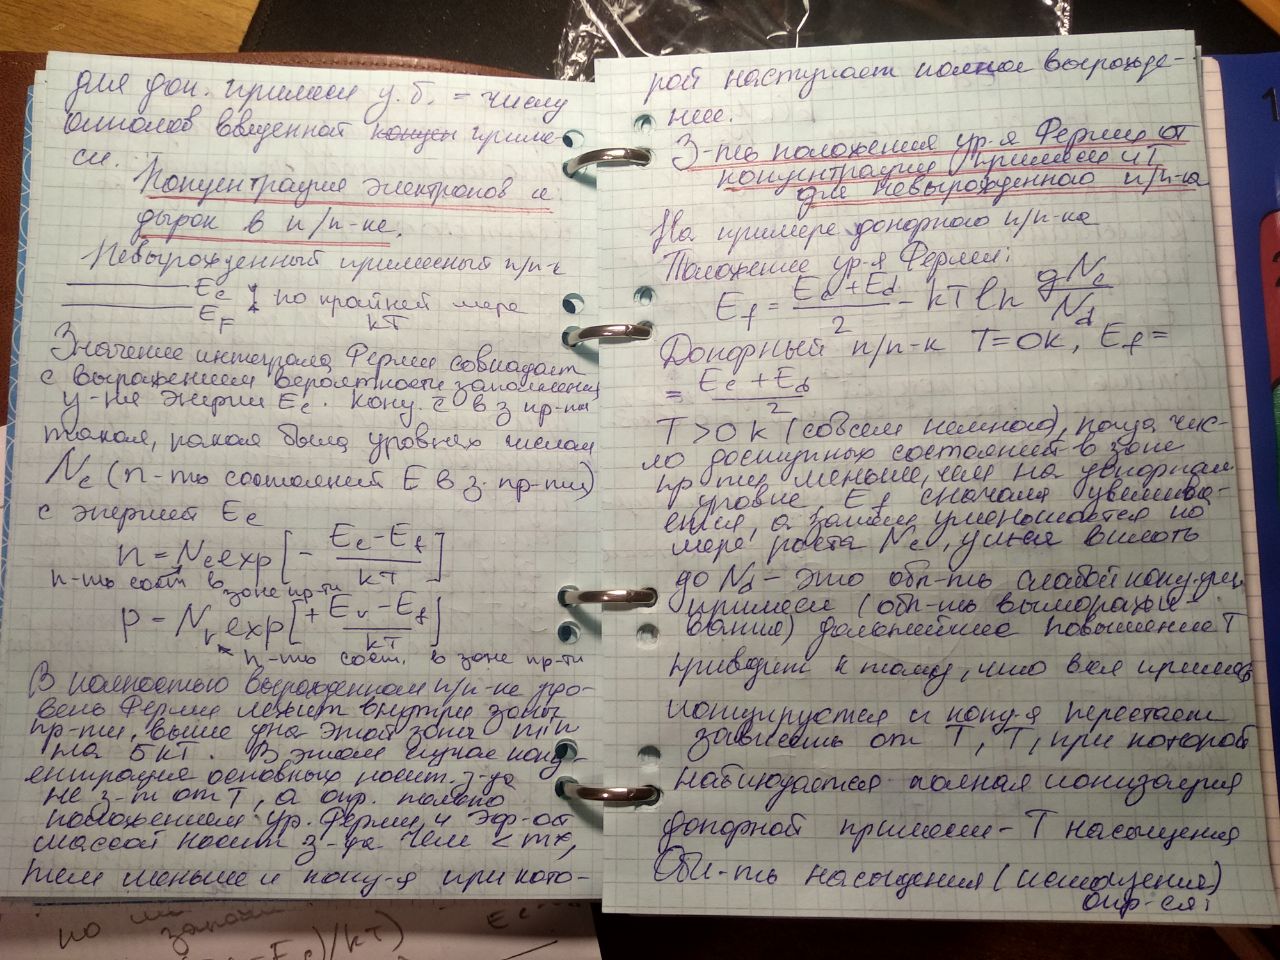 для дон. примеси у.б. = числу
атомов введенной концен приме-
си.
Концентрация электронов и
дырок в п/п-ке.
Невырожденный примесный п/п-к
Ec
EF
по крайней мере
kT
Значение интеграла Ферми совпадает
с выражением вероятности заполнения
у-ня энергии Ec. Конц. е в з пр-ти
такая, какая была уровнях числом
Nc (п-ть состояний E в з. пр-ти)
с энергией Ec
n = Nc exp[- Ec-Ef / kT]
п-ть сост в зоне пр-ти
p = Nv exp[+ Ev-Ef / kT]
п-ть сост. в зоне пр-ти
В полностью вырожденном п/п-ке уро-
вень Ферми лежит внутри зоны
пр-ти, выше дна этой зоны min
на 5kT. В этом случае конц-
ентрация основных носит. з-да
не з-т от T, а опр. только
положением ур. Ферми и эф-ой
массой носит з-да Чем < m*,
тем меньше и конц-я при кото-
рой наступает полное вырожде-
ние.
З-ть положения ур-я Ферми от
концентрации примеси и T
для невырожденного п/п-ка
На примере донорного п/п-ка
Положение ур-я Ферми:
Ef = Ec+Ed / 2 - kT ln gNc / Nd
Донорный п/п-к T=0K, Ef =
= Ec+Ed / 2
T>0K (совсем немного), когда чис-
ло доступных состояний в зоне
пр-ти меньше, чем на донорном
уровне Ef сначала увеличива-
ется, а затем уменьшается по
мере роста Nc, вплоть
до Nd - это обл-ть слабой конц-ции
примеси (обл-ть выморажи-
вания) дальнейшее повышение T
приводит к тому, что вся примесь
ионизируется и конц-я перестает
зависеть от T, T, при которой
наблюдается полная ионизация
донорной примеси - T насыщения
Обл-ть насыщения (истощения)
опр-ся:
по
запол
Ec
-Ec)/kT)